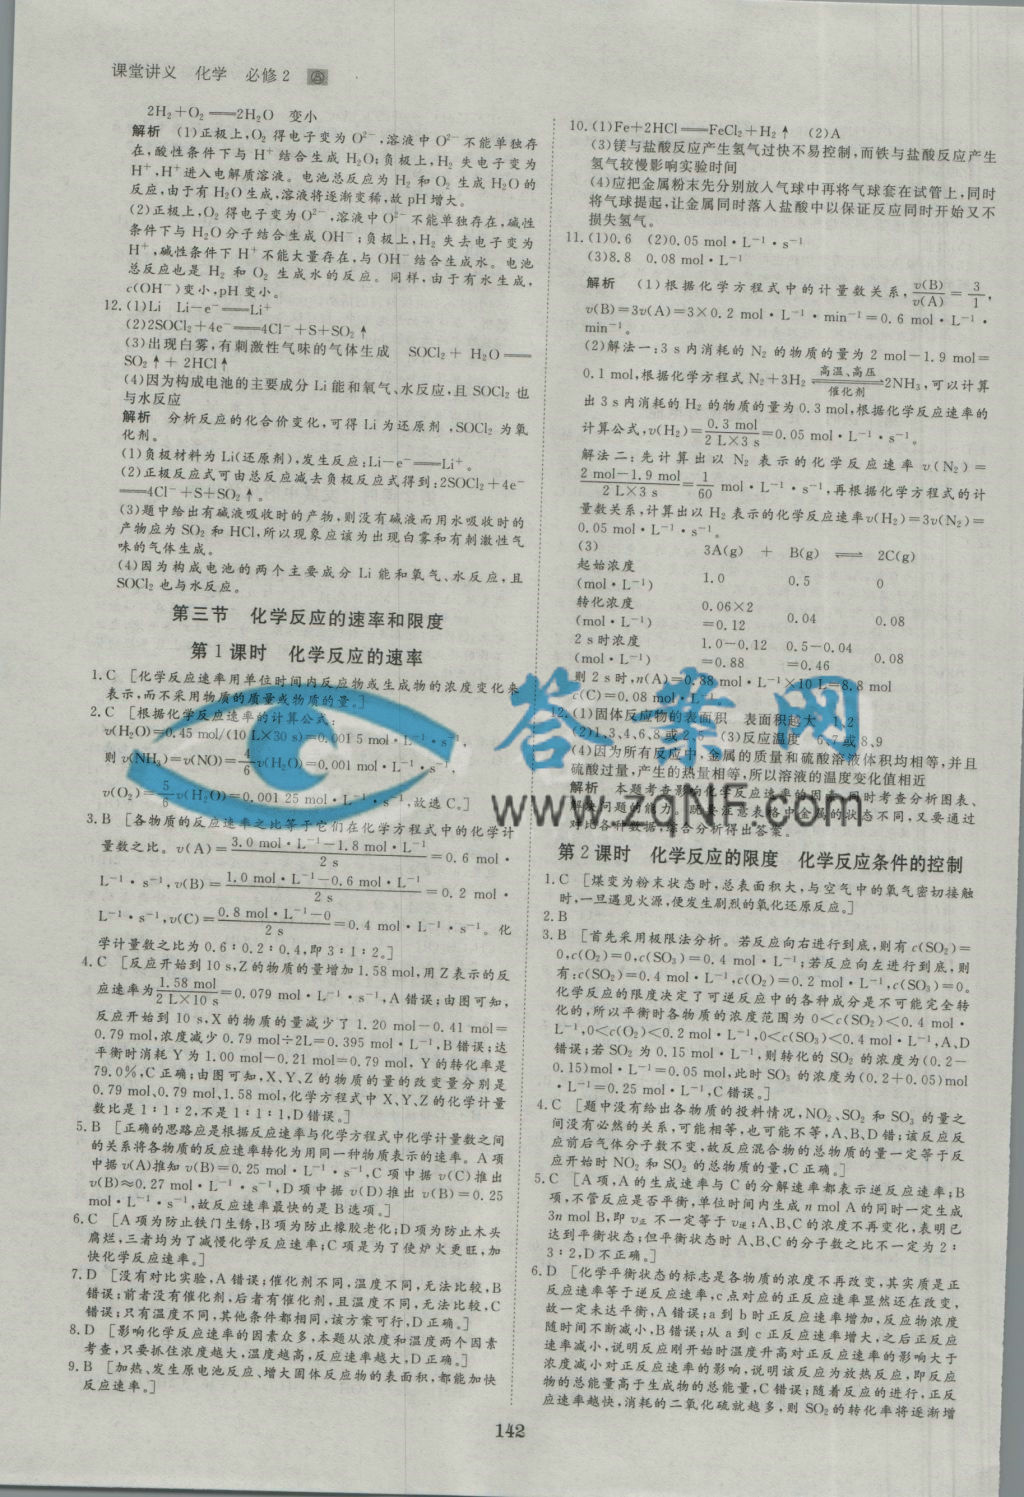 课堂讲义 化学 必修2
2H₂+O₂══2H₂O 变小
解析 (1)正极上,O₂ 得电子变为 O²⁻,溶液中 O²⁻ 不能单独存
在,酸性条件下与 H⁺ 结合生成 H₂O;负极上,H₂ 失电子变为
H⁺,H⁺进入电解质溶液。电池总反应为 H₂ 和 O₂ 生成 H₂O 的
反应,由于有 H₂O 生成,溶液将逐渐变稀,故 pH 增大。
(2)正极上,O₂ 得电子变为O²⁻,溶液中 O²⁻ 不能单独存在,碱性
条件下与 H₂O 分子结合生成 OH⁻;负极上,H₂ 失去电子变为
H⁺,碱性条件下 H⁺ 不能大量存在,与 OH⁻ 结合生成水。电池
总反应也是 H₂ 和 O₂ 生成水的反应。同样,由于有水生成,
c(OH⁻)变小,pH 变小。
12.(1)Li Li-e⁻══Li⁺
(2)2SOCl₂+4e⁻══4Cl⁻+S+SO₂↑
(3)出现白雾,有刺激性气味的气体生成 SOCl₂+H₂O══
SO₂↑+2HCl↑
(4)因为构成电池的主要成分 Li 能和氧气、水反应,且 SOCl₂ 也
与水反应
解析 分析反应的化合价变化,可得 Li 为还原剂,SOCl₂ 为氧
化剂。
(1)负极材料为 Li(还原剂),发生反应:Li-e⁻══Li⁺。
(2)正极反应式可由总反应减去负极反应式得到:2SOCl₂+4e⁻
══4Cl⁻+S+SO₂↑。
(3)题中给出有碱液吸收时的产物,则没有碱液而用水吸收时的
产物应为 SO₂ 和 HCl,所以现象应该为出现白雾和有刺激性气
味的气体生成。
(4)因为构成电池的两个主要成分 Li 能和氧气、水反应,且
SOCl₂ 也与水反应。
第三节 化学反应的速率和限度
第1课时 化学反应的速率
1.C [化学反应速率用单位时间内反应物或生成物的浓度变化来
表示,而不采用物质的质量或物质的量。]
2.C [根据化学反应速率的计算公式:
v(H₂O)=0.45 mol/(10 L×30 s)=0.001 5 mol·L⁻¹·s⁻¹,
则 v(NH₃)=v(NO)=4/6 v(H₂O)=0.001 mol·L⁻¹·s⁻¹,
v(O₂)=5/6 v(H₂O)=0.001 25 mol·L⁻¹·s⁻¹,故选 C。]
3.B [各物质的反应速率之比等于它们在化学方程式中的化学计
量数之比。v(A)=(3.0 mol·L⁻¹-1.8 mol·L⁻¹)/2 s=0.6 mol·
L⁻¹·s⁻¹,v(B)=(1.0 mol·L⁻¹-0.6 mol·L⁻¹)/2 s=0.2 mol·
L⁻¹·s⁻¹,v(C)=(0.8 mol·L⁻¹-0)/2 s=0.4 mol·L⁻¹·s⁻¹。化
学计量数之比为 0.6∶0.2∶0.4,即 3∶1∶2。]
4.C [反应开始到 10 s,Z 的物质的量增加 1.58 mol,用 Z 表示的反
应速率为1.58 mol/(2 L×10 s)=0.079 mol·L⁻¹·s⁻¹,A 错误;由图可知,
反应开始到 10 s,X 的物质的量减少了 1.20 mol-0.41 mol=
0.79 mol,浓度减少 0.79 mol÷2L=0.395 mol·L⁻¹,B错误;达
平衡时消耗 Y 为 1.00 mol-0.21 mol=0.79 mol,Y 的转化率是
79.0%,C正确;由图可知,X、Y、Z 的物质的量的改变量分别是
0.79 mol、0.79 mol、1.58 mol,化学方程式中 X、Y、Z 的化学计量
数比是 1∶1∶2,不是 1∶1∶1,D 错误。]
5.B [正确的思路应是根据反应速率与化学方程式中化学计量数之间
的关系将各物质的反应速率转化为用同一种物质表示的速率。A 项
中据 v(A)推知 v(B)=0.25 mol·L⁻¹·s⁻¹,C 项中据 v(C)推出
v(B)≈0.27 mol·L⁻¹·s⁻¹,D 项中据 v(D)推出 v(B)=0.25
mol·L⁻¹·s⁻¹,故反应速率最快的是 B 选项。]
6.C [A 项为防止铁门生锈,B 项为防止橡胶老化;D 项为防止木头
腐烂,三者均为了减慢化学反应速率;C 项是为了使炉火更旺,加
快化学反应速率。]
7.D [没有对比实验,A 错误;催化剂不同,温度不同,无法比较,B
错误;前者没有催化剂,后者有催化剂,且温度不同,无法比较,C
错误;只有温度不同,其他条件都相同,该方案可行,D 正确。]
8.D [影响化学反应速率的因素众多,本题从浓度和温度两个因素
考查,只要抓住浓度越大,温度越高,反应速率越大,D 正确。]
9.B [加热、发生原电池反应、增大固体反应物的表面积,都能加快
反应速率。]
10.(1)Fe+2HCl══FeCl₂+H₂↑ (2)A
(3)镁与盐酸反应产生氢气过快不易控制,而铁与盐酸反应产生
氢气较慢影响实验时间
(4)应把金属粉末先分别放入气球中再将气球套在试管上,同时
将气球提起,让金属同时落入盐酸中以保证反应同时开始又不
损失氢气。
11.(1)0.6 (2)0.05 mol·L⁻¹·s⁻¹
(3)8.8 0.08 mol·L⁻¹
解析 (1)根据化学方程式中的计量数关系,v(B)/v(A)=3/1,
v(B)=3v(A)=3×0.2 mol·L⁻¹·min⁻¹=0.6 mol·L⁻¹·
min⁻¹。
(2)解法一:3 s 内消耗的 N₂ 的物质的量为 2 mol-1.9 mol=
0.1 mol,根据化学方程式 N₂+3H₂ ⇌(高温、高压/催化剂) 2NH₃,可以计算
出 3 s 内消耗的 H₂ 的物质的量为 0.3 mol,根据化学反应速率的
计算公式,v(H₂)=0.3 mol/(2 L×3 s)=0.05 mol·L⁻¹·s⁻¹。
解法二:先计算出以 N₂ 表示的化学反应速率 v(N₂)=
(2 mol-1.9 mol)/(2 L×3 s)=1/60 mol·L⁻¹·s⁻¹,再根据化学方程式的计
量数关系,计算出以 H₂ 表示的化学反应速率v(H₂)=3v(N₂)=
0.05 mol·L⁻¹·s⁻¹。
(3) 3A(g) + B(g) ⇌ 2C(g)
起始浓度
(mol·L⁻¹) 1.0 0.5 0
转化浓度 0.06×2
(mol·L⁻¹) =0.12 0.04 0.08
2 s时浓度 1.0-0.12 0.5-0.04
(mol·L⁻¹) =0.88 =0.46 0.08
则 2 s 时,n(A)=0.88 mol·L⁻¹×10 L=8.8 mol
c(C)=0.08 mol·L⁻¹
12.(1)固体反应物的表面积 表面积越大 1、2
(2)1、3、4、6、8 或 2、5 (3)反应温度 6、7 或 8、9
(4)因为所有反应中,金属的质量和硫酸溶液体积均相等,并且
硫酸过量,产生的热量相等,所以溶液的温度变化值相近
解析 本题考查影响化学反应速率的因素,同时考查分析图表、
解决问题的能力。既要注意表格中金属的状态不同,又要通过
对比各种数据,结合分析得出答案。
第2课时 化学反应的限度 化学反应条件的控制
1.C [煤变为粉末状态时,总表面积大,与空气中的氧气密切接触
时,一旦遇见火源,便发生剧烈的氧化还原反应。]
2.B
3.B [首先采用极限法分析。若反应向右进行到底,则有 c(SO₂)=
0,c(O₂)=0,c(SO₃)=0.4 mol·L⁻¹;若反应向左进行到底,则
有:c(SO₂)=0.4 mol·L⁻¹,c(O₂)=0.2 mol·L⁻¹,c(SO₃)=0。
化学反应的限度决定了可逆反应中的各种成分是不可能完全转
化的,所以平衡时各物质的浓度范围为 0<c(SO₂)<0.4 mol·
L⁻¹,0<c(O₂)<0.2 mol·L⁻¹,0<c(SO₃)<0.4 mol·L⁻¹,A、D
错误;若 SO₂ 为 0.15 mol·L⁻¹,则转化的 SO₂ 的浓度为(0.2-
0.15)mol·L⁻¹=0.05 mol,此时 SO₃ 的浓度为(0.2+0.05)mol
·L⁻¹=0.25 mol·L⁻¹,C 错误。]
4.C [题中没有给出各物质的投料情况,NO₂、SO₂ 和 SO₃ 的量之
间没有必然的关系,可能相等,也可能不等,A、B、D 错;该反应反
应前后气体分子数不变,故反应混合物的总物质的量一定等于反
应开始时 NO₂ 和 SO₂ 的总物质的量,C 正确。]
5.C [A 项,A 的生成速率与 C 的分解速率都表示逆反应速率;B
项,不管反应是否平衡,单位时间内生成 n mol A 的同时一定生成
3n mol B,即 v正 不一定等于 v逆;A、B、C 的浓度不再变化,表明已
达到平衡状态;但平衡状态时 A、B、C 的分子数之比不一定为 2∶
3∶2,D 不正确。]
6.D [化学平衡状态的标志是各物质的浓度不再改变,其实质是正
反应速率等于逆反应速率,c 点对应的正反应速率显然还在改变,
故一定未达平衡,A 错误;a 到 b 时正反应速率增加,反应物浓度
随时间不断减小,B 错误;从 a 到 c 正反应速率增大,之后正反应
速率减小,说明反应刚开始时温度升高对正反应速率的影响大于
浓度减小对正反应速率的影响,说明该反应为放热反应,即反应
物的总能量高于生成物的总能量,C 错误;随着反应的进行,正反
应速率越快,消耗的二氧化硫就越多,则 SO₂ 的转化率将逐渐增
142
答案网
www.zqnf.com